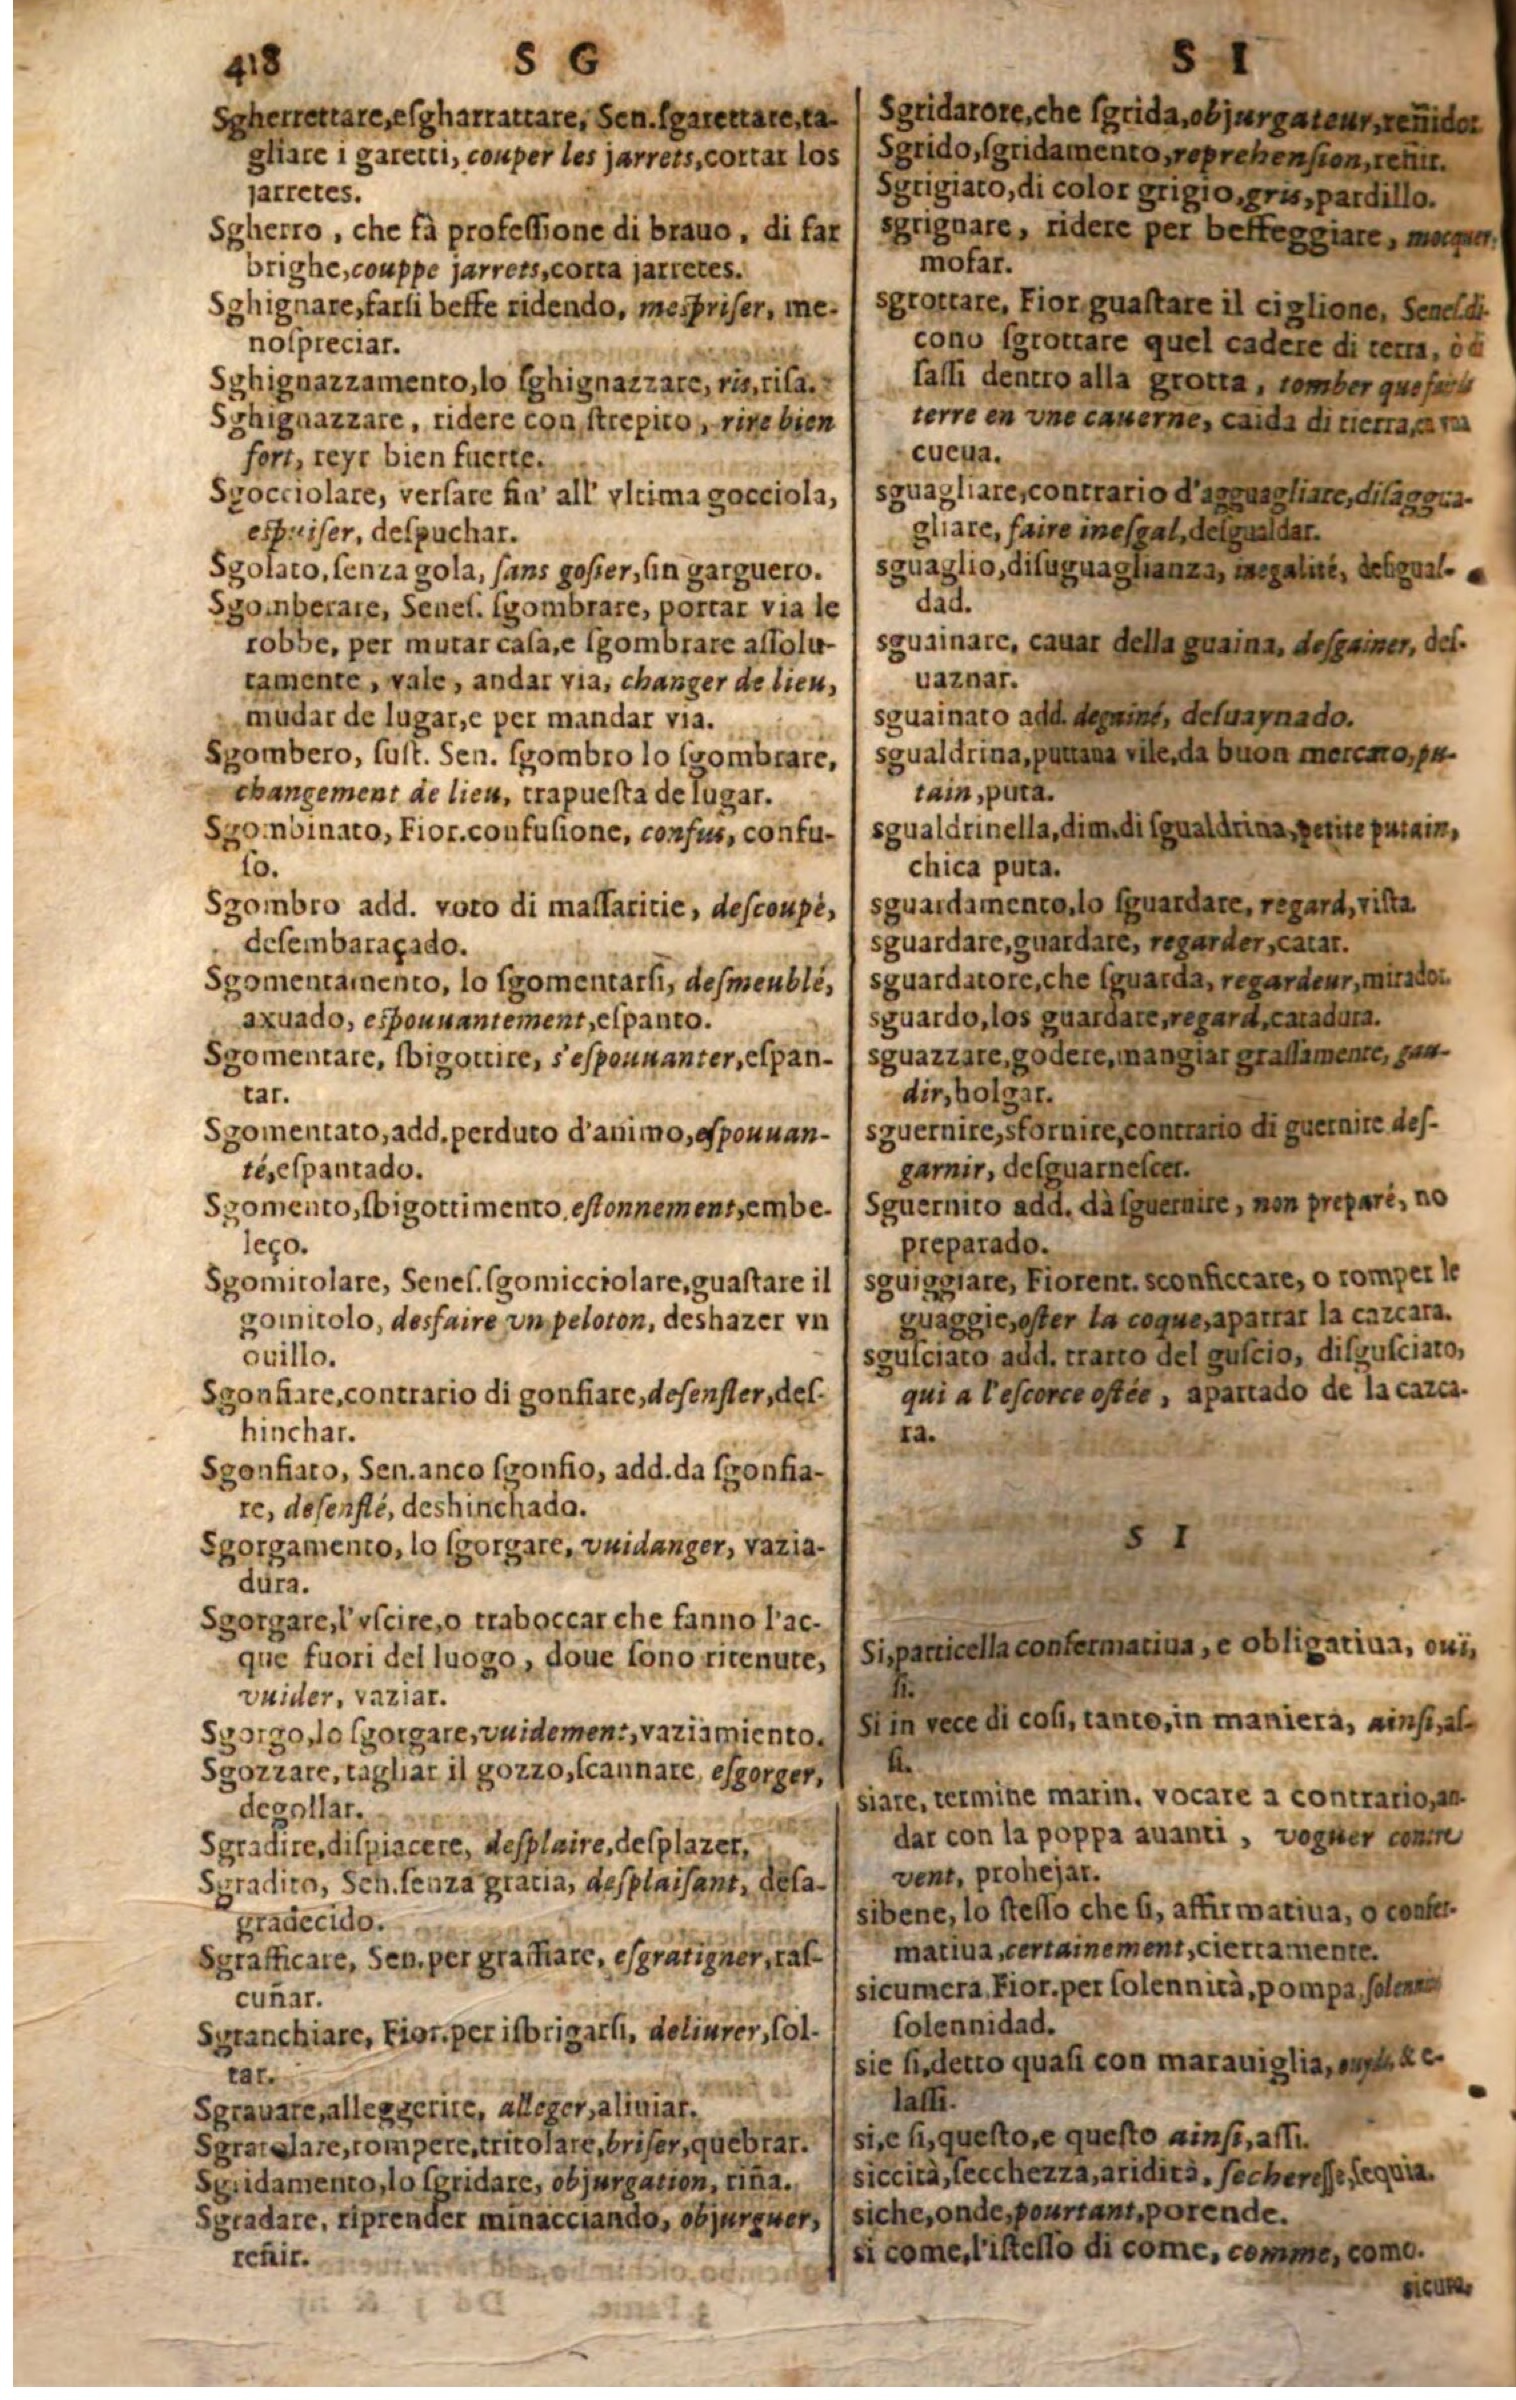 418 S G S I
Sgherrettare,esgharrattare, Sen.ſgarettare,ta-
gliare i garetti, couper les jarrets,cortar los
jarretes.
Sgherro , che fà profeſſione di brauo , di far
brighe,couppe jarrets,corta jarretes.
Sghignare,farſi beffe ridendo, meſpriſer, me-
noſpreciar.
Sghignazzamento,lo ſghignazzare, ris,riſa.
Sghignazzare , ridere con ſtrepito , rire bien
fort, reyr bien fuerte.
Sgocciolare, verſare fin' all' vltima gocciola,
eſpuiſer, deſpuchar.
Sgolato,ſenza gola, ſans goſier,ſin garguero.
Sgomberare, Seneſ. ſgombrare, portar via le
robbe, per mutar caſa,e ſgombrare aſſolu-
tamente , vale , andar via, changer de lieu,
mudar de lugar,e per mandar via.
Sgombero, ſuſt. Sen. ſgombro lo ſgombrare,
changement de lieu, trapueſta de lugar.
Sgombinato, Fior.confuſione, confus, confu-
ſo.
Sgombro add. voto di maſſaritie, deſcoupè,
deſembaraçado.
Sgomentamento, lo ſgomentarſi, deſmeublé,
axuado, eſpouuantement,eſpanto.
Sgomentare, ſbigottire, s'eſpouuanter,eſpan-
tar.
Sgomentato,add.perduto d'animo,eſpouuan-
té,eſpantado.
Sgomento,ſbigottimento,eſtonnement,embe-
leço.
Sgomitolare, Seneſ.ſgomicciolare,guaſtare il
gomitolo, desfaire vn peloton, deshazer vn
ouillo.
Sgonfiare,contrario di gonfiare,deſenfler,deſ-
hinchar.
Sgonfiato, Sen.anco ſgonfio, add.da ſgonfia-
re, deſenflé, deshinchado.
Sgorgamento, lo ſgorgare, vuidanger, vazia-
dura.
Sgorgare,l'vſcire,o traboccar che fanno l'ac-
que fuori del luogo , doue ſono ritenute,
vuider, vaziar.
Sgorgo,lo ſgorgare,vuidement,vaziamiento.
Sgozzare, tagliar il gozzo,ſcannare, eſgorger,
degollar.
Sgradire,diſpiacere, deſplaire,deſplazer.
Sgradito, Sen.ſenza gratia, deſplaiſant, deſa-
gradecido.
Sgrafficare, Sen.per graffiare, eſgratigner,raſ-
cuñar.
Sgranchiare, Fior.per iſbrigarſi, deliurer,ſol-
tar.
Sgrauare,alleggerire, alleger,aliuiar.
Sgratolare,rompere,tritolare,briſer,quebrar.
Sgridamento,lo ſgridare, objurgation, riña.
Sgradare, riprender minacciando, objurguer,
reñir.
Sgridarore,che ſgrida,objurgateur,reñidor.
Sgrido,ſgridamento,reprehenſion,reñir.
Sgrigiato,di color grigio,gris,pardillo.
sgrignare, ridere per beffeggiare, mocquer,
mofar.
sgrottare, Fior guaſtare il ciglione, Seneſ.di-
cono ſgrottare quel cadere di terra,
ſaſſi dentro alla grotta , tomber que
terre en vne cauerne, caida di tierra,
cueua.
sguagliare,contrario d'agguagliare,diſaggua-
gliare, faire ineſgal,deſgualdar.
sguaglio,diſuguaglianza, inegalité, desigual-
dad.
sguainare, cauar della guaina, deſgainer, deſ-
uaznar.
sguainato add. degainé, deſuaynado.
sgualdrina,puttana vile,da buon mercato,pu-
tain,puta.
sgualdrinella,dim.di ſgualdrina,petite putain,
chica puta.
sguardamento,lo ſguardare, regard,viſta.
sguardare,guardare, regarder,catar.
sguardatore,che ſguarda, regardeur,mirador.
sguardo,los guardare,regard,catadura.
sguazzare,godere,mangiar graſſamente, gau-
dir,holgar.
sguernire,sfornire,contrario di guernire deſ-
garnir, deſguarneſcer.
Sguernito add. dà ſguernire , non preparé, no
preparado.
sguiggiare, Fiorent. sconficcare, o romper le
guaggie,oſter la coque,apartar la cazcara.
sguſciato add. tratto del guſcio, diſguſciato,
qui a l'eſcorce oſtée , apartado de la cazca-
ra.
S I
Si,particella confermatiua , e obligatiua, ouï,
ſi.
Si in vece di coſi, tanto,in maniera, ainſi,aſ-
ſi.
siare, termine marin. vocare a contrario,an-
dar con la poppa auanti , voguer contre
vent, prohejar.
sibene, lo ſteſſo che ſi, affirmatiua, o confer-
matiua,certainement,ciertamente.
sicumera Fior.per ſolennità,pompa,
ſolennidad.
sie ſi,detto quaſi con marauiglia, & e-
laſſi.
si,e ſi,queſto,e queſto ainſi,aſſi.
siccità,ſecchezza,aridità, ſechereſſe,ſequia.
siche,onde,pourtant,porende.
si come,l'iſteſſo di come, comme, como.
sicura,